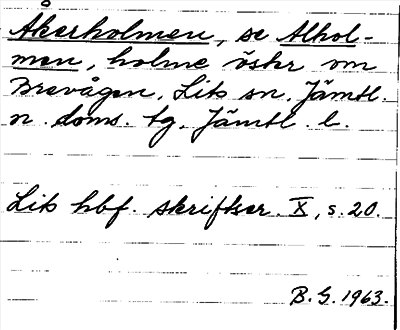 Åkerholmen, se Alhol-
men, holme öster om
Brevågen. Lits sn. Jämtl.
n. doms. tg. Jämtl. l.
Lits hbf. skriftser. X, s. 20.
B. G. 1963.